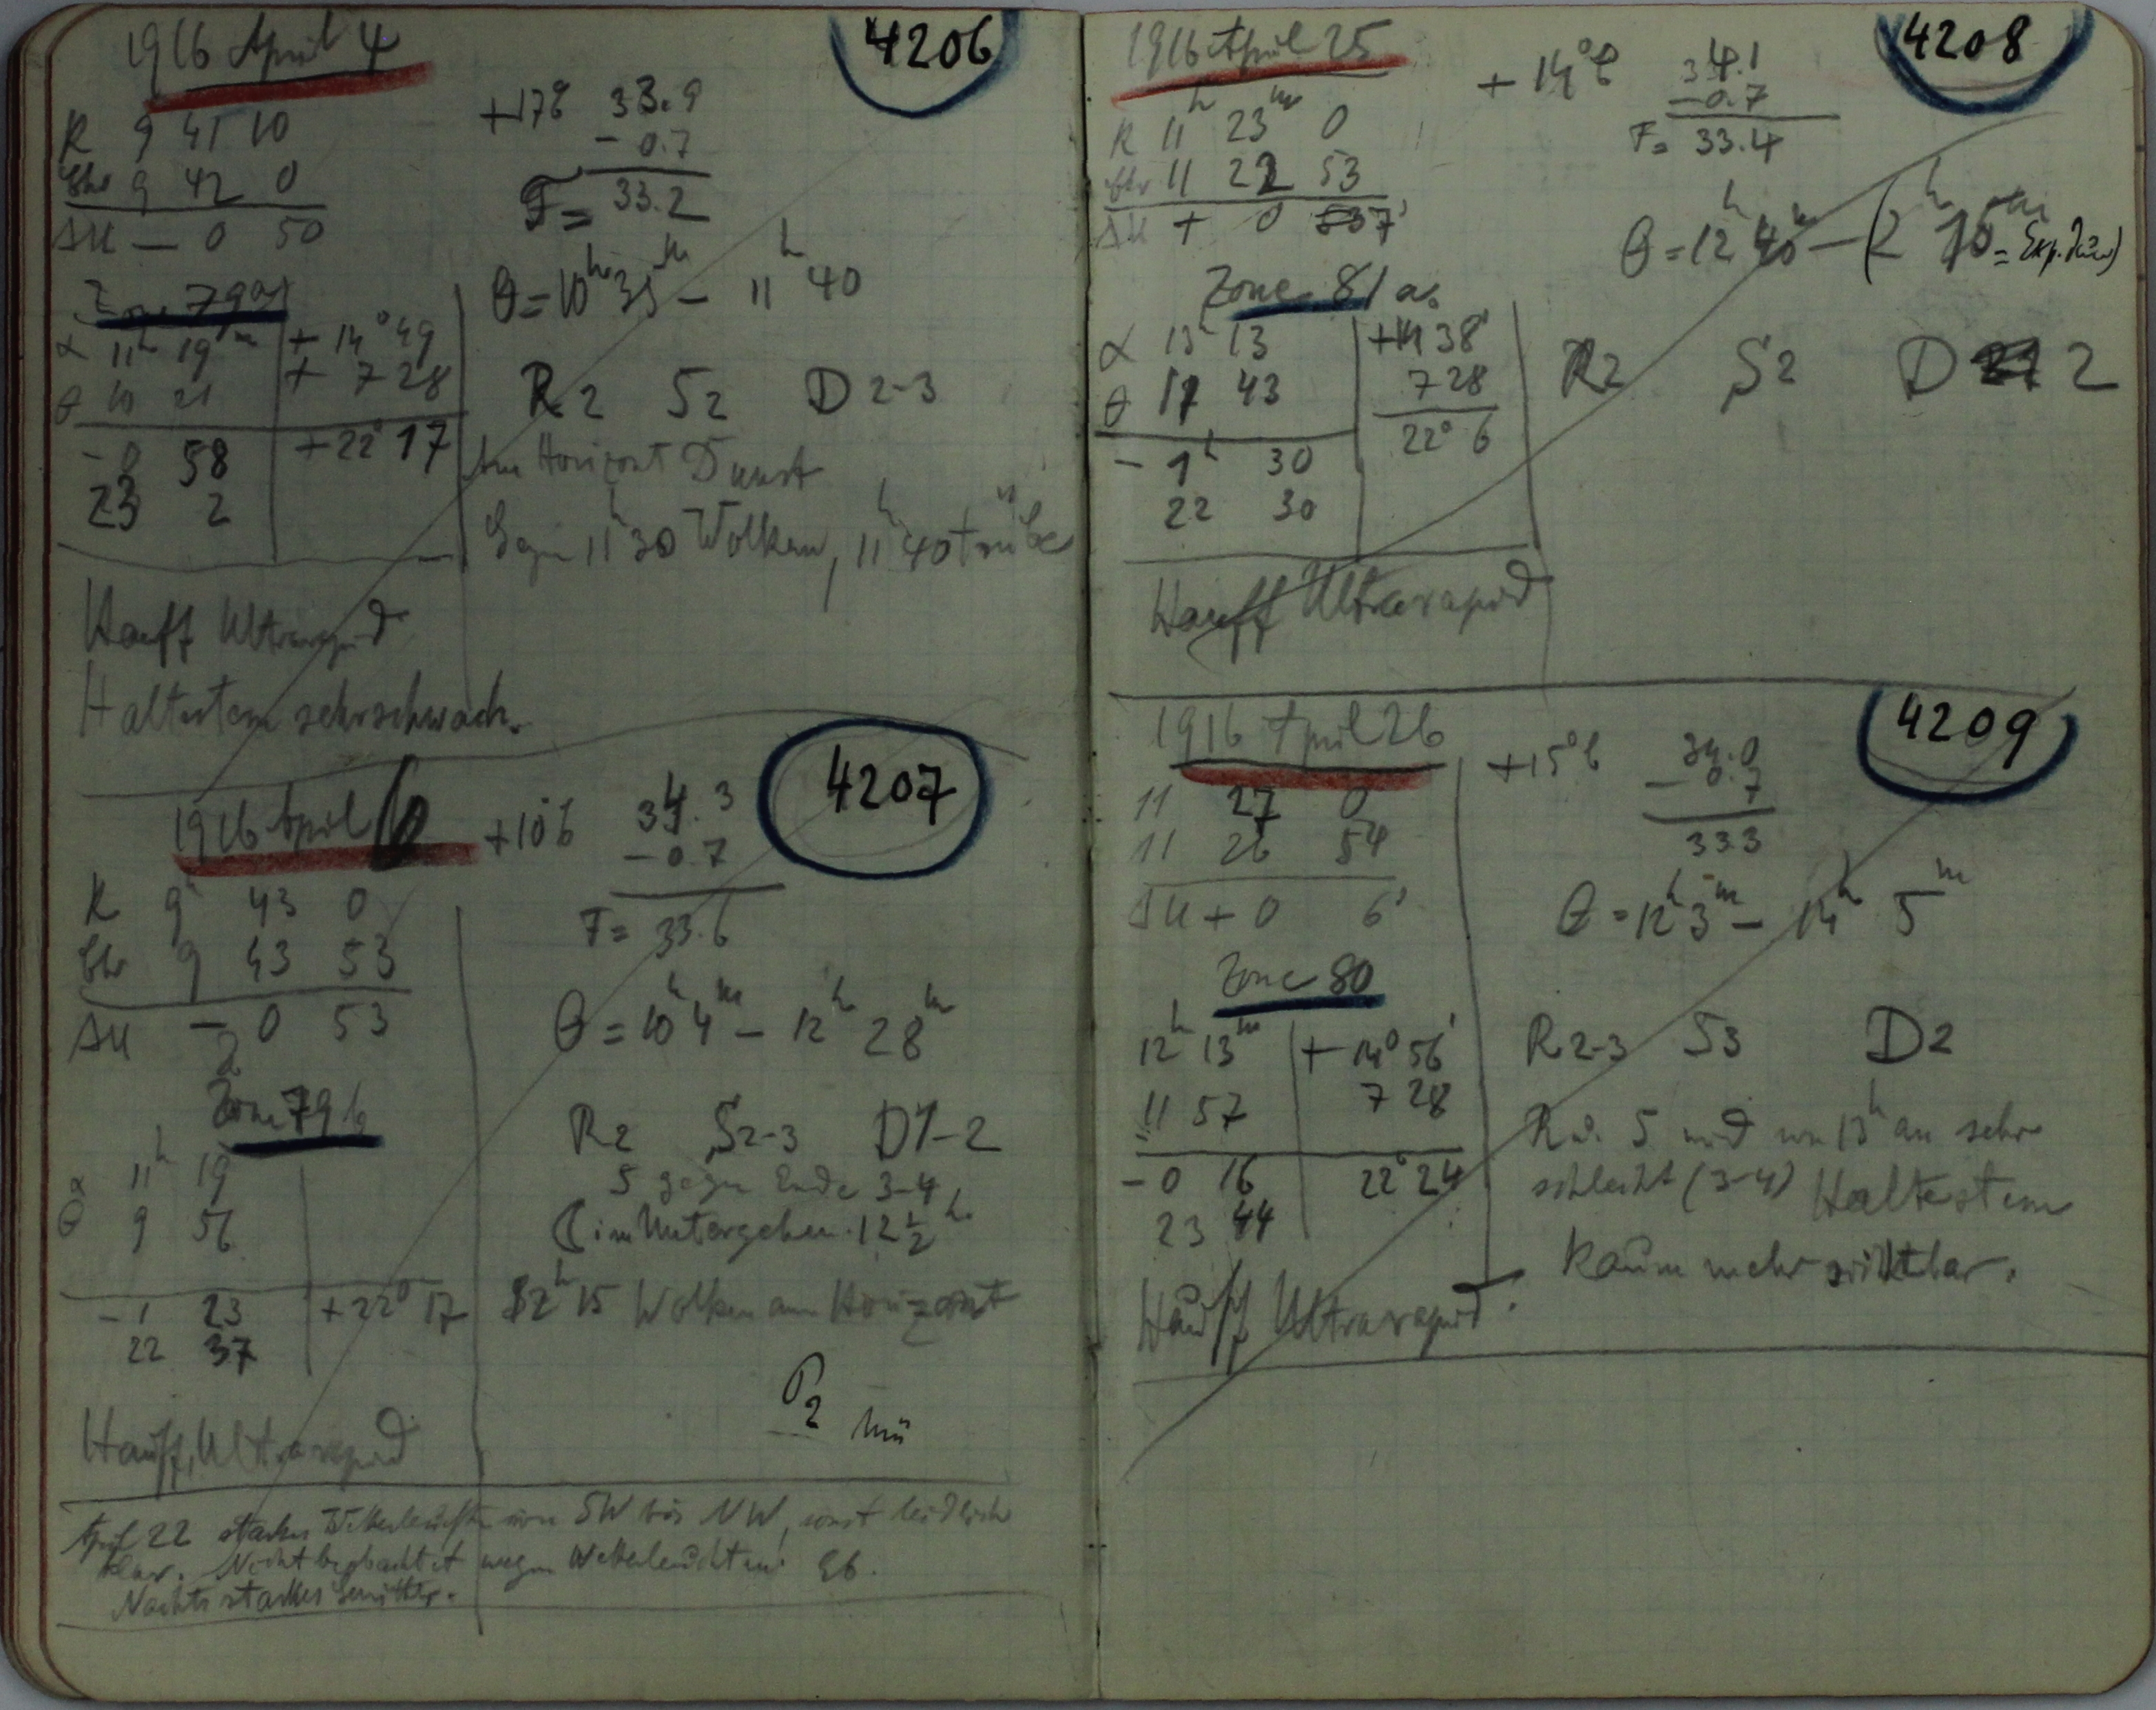 1916 April 4
4206
R 9 41 10
Uhr 9 42 0
ΔU — 0 50
+17°8 33.9
- 0.7
F = 33.2
Zone 79a
θ = 10h 35m — 11h 40
α 11h 19m + 14° 49
θ 10 21 + 7 28
- 0 58 + 22° 17
23 2
R 2 S 2 D 2-3
Am Horizont Dunst
Gegen 11h 30 Wolken, 11h 40 trübe
Hauff Ultrarapid
Haltestern sehr schwach.
1916 April 6
+10°6 34.3
- 0.7
F = 33.6
4207
R 9h 43 0
Uhr 9 43 53
ΔU — 0 53
θ = 10h 4m — 12h 28m
Zone 79b
α 11h 19
θ 9 56
- 1 23 + 22° 17
22 37
R2 S2-3 D1-2
S gegen Ende 3-4
☾ im Untergehen 12 1/2 h
12h 15 Wolken am Horizont
P2 Mü
Hauff, Ultrarapid
April 22 starkes Wetterleuchten von SW bis NW, sonst leidlich
klar. Nicht beobachtet wegen Wetterleuchten
Nachts starkes Gewitter.
1916 April 25
4208
R 11h 23m 0
Uhr 11 22 53
ΔU + 0 7
+ 14°6 34.1
- 0.7
F = 33.4
θ = 12h 40m — (2h 15m = Exp. Dauer)
Zone 81a.
α 13h 13 +14 38'
θ 11 43 7 28
- 1h 30 22° 6
22 30
R2 S2 D 2
Hauff Ultrarapid
1916 April 26
4209
11 27 0
11 26 54
ΔU + 0 6
+15°6 34.0
- 0.7
33.3
θ = 12h 3m — 14h 5m
Zone 80
12h 13m + 14° 56'
11 57 7 28
- 0 16 22° 24
23 44
R2-3 S3 D2
R u. S wird von 13h an sehr
schlecht (3-4) Haltestern
kaum mehr sichtbar.
Hauff Ultrarapid.